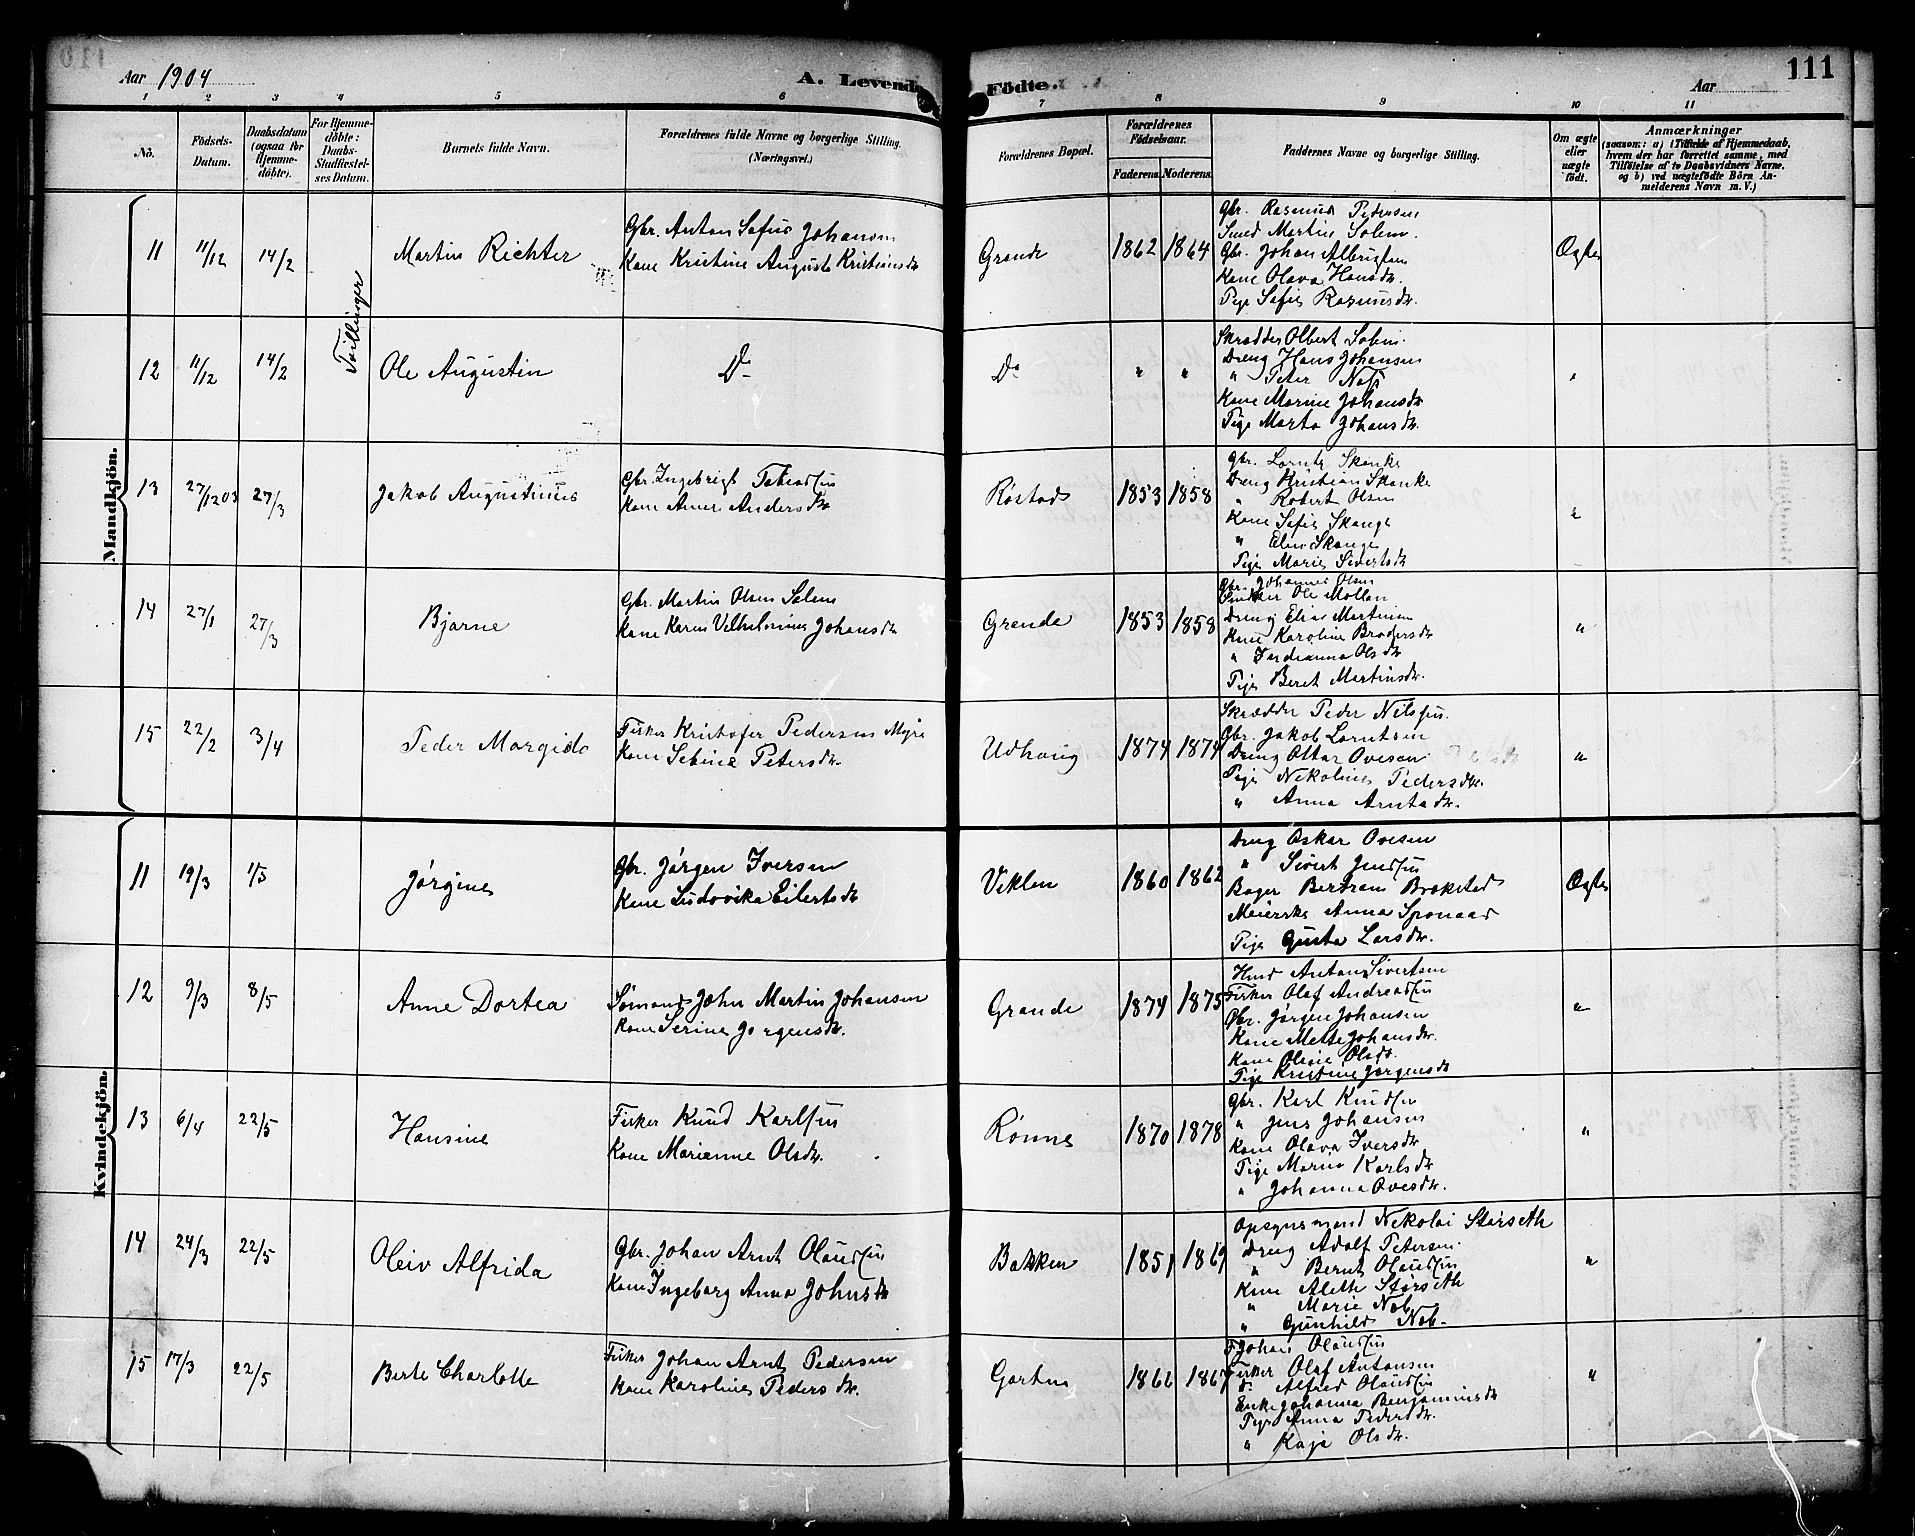 Aar 1904
A. Levende
Födte.
Aar
111
1 2 3 4 5 6 7 8 9 10 11
No.
Födsels-Datum.
Daabsdatum (ogsaa for Hjemme-döbte).
For Hjemme-döbte: Daabs-Stadfæstel-ses Datum.
Barnets fulde Navn.
Forældrenes fulde Navne og borgerlige Stilling. (Næringsvei.)
Forældrenes Bopæl.
Forældrenes Födselsaar.
Faderens. Moderens.
Faddernes Navne og borgerlige Stilling.
Om ægte eller uægte födt.
Anmærkninger
(saasom: a) i Tilfælde af Hjemmedaab, hvem der har forrettet samme, med Tilföielse af to Daabsvidners Navne, og b) ved uægtefödte Börn Anmelderens Navn m. V.)
Mandkjön.
Tvillinger
11 11/12 14/2 Martin Richter
Gbr. Anton Sofus Johansen
Kone Kristine Augusta Kristiansdr
Grande 1862 1864
Gbr. Rasmus Pedersen
Smed Martin Solem
Gbr. Johan Albrigtsen
Kone Olava Hansdr.
Pige Sofie Rasmusdr.
Ægte
12 11/12 14/2 Ole Augustin
Do
Do " "
Skrædder Olbert Solem
Dreng Hans Johansen
" Peter
Kone Marine Johansdr
Pige Marta Johansdr.
"
13 27/12 03 27/3 Jakob Augustinus
Gbr. Ingebrigt
Kone Andersdr
Røstad 1853 1858
Gbr. Lornts Skanke
Dreng Kristian Skanke
" Robert Olsen
Kone Sofie Skange
" Skange
Pige Marie Sivertsdr
"
14 27/1 27/3 Bjarne
Gbr. Martin Olsen Solem
Kone Karen Vilhelmine Johansdr
Grande 1853 1858
Gbr. Johannes Olsen
Ole Mollan
Dreng Elias Martinsen
Kone Karoline Brodersdr
" Olsdr
Pige Beret Martinsdr.
"
15 22/2 3/4 Peder Margido
Fisker Kristofer Pedersen Myra
Kone Sebine Petersdr.
Udhaug 1874 1874
Skrædder Peder Nilssen.
Gbr. Jakob Lorntsen
Dreng Ottar Ovesen
Pige Nekoline Pedersdr.
" Anna Arntsdr.
"
Kvindekjön.
11 19/3 1/5 Jørgine
Gbr. Jørgen Iversen
Kone Ludovika Eilertsdr
Viklen 1860 1862
Dreng Oskar Ovesen
" Sivert
Bager Bertram Brækstad
Meierske Anna
Pige Gusta Larsdr.
Ægte
12 9/3 8/5 Anne Dortea
Sømand John Martin Johansen
Kone Serine Jørgensdr.
Grande 1874 1875
Anton Sivertsen
Fisker Olaf Andreassen
Gbr. Jørgen Johansen
Kone Mette Johansdr.
Kone Oline Olsdr.
Pige Kristine Jørgensdr
"
13 6/4 22/5 Hansine
Fisker Knud Karlsen
Kone Marianne Olsdr.
Rønne 1870 1878
Gbr. Karl Knudsen
" Jens Johansen
Kone Olava Iversdr
Pige Marna Karlsdr
" Johanna Ovesdr.
"
14 24/3 22/5 Oleiv Alfrida
Gbr. Johan Arnt Olaussen
Kone Ingeborg Anna Johnsdr
Bakken 1851 1869
Opsynsmand Nekolai Størseth
Dreng Adolf Petersen.
" Bernt Olaussen
Kone Alette Størseth
" Marie
" Gunhild
"
15 17/3 22/5 Berte Charlotte
Fisker Johan Arnt Pedersen
Kone Karoline Pedersdr.
Garten 1866 1867
Johan Olaussen
Fisker Olaf Antonsen
do. Alfred Olaussen
Enke Johanna Benjaminsdr
Pige Anna Pedersdr.
" Kaja Olsdr.
"